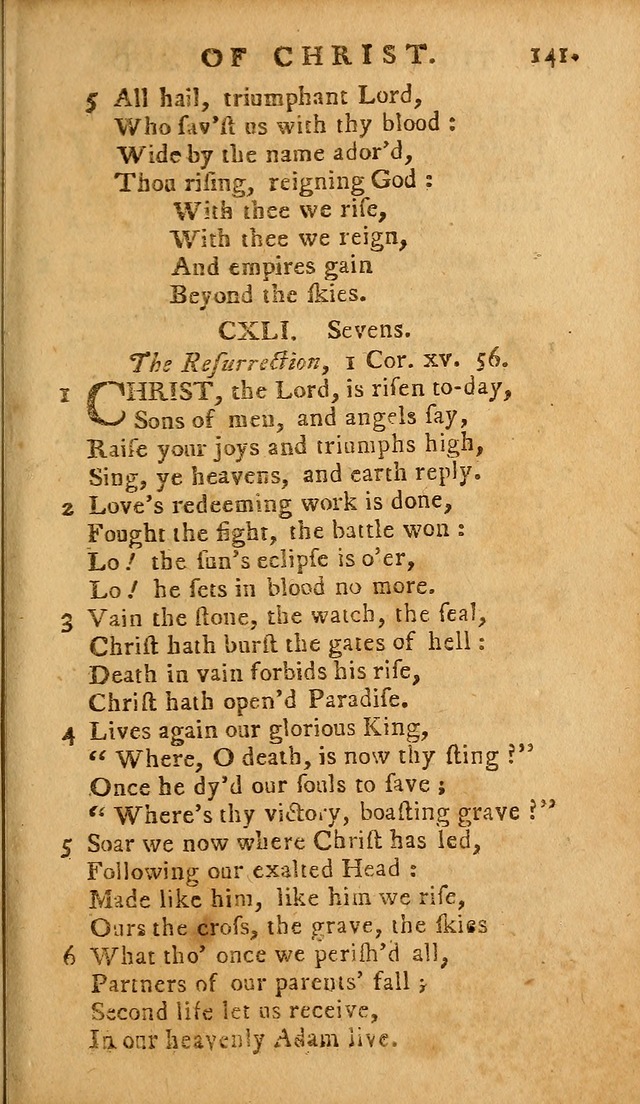 OF CHRIST. 141.
5 All hail, triumphant Lord,
Who ſav’ſt us with thy blood :
Wide by the name ador’d,
Thou riſing, reigning God :
With thee we riſe,
With thee we reign,
And empires gain
Beyond the ſkies.
CXLI. Sevens.
The Reſurrection, 1 Cor. xv. 56.
1 CHRIST, the Lord, is riſen to-day,
Sons of men, and angels ſay,
Raiſe your joys and triumphs high,
Sing, ye heavens, and earth reply.
2 Love’s redeeming work is done,
Fought the fight, the battle won :
Lo! the ſun’s eclipſe is o’er,
Lo! he ſets in blood no more.
3 Vain the ſtone, the watch, the ſeal,
Chriſt hath burſt the gates of hell :
Death in vain forbids his riſe,
Chriſt hath open’d Paradiſe.
4 Lives again our glorious King,
“ Where, O death, is now thy ſting ?”
Once he dy’d our ſouls to ſave ;
“ Where’s thy victory, boaſting grave ?”
5 Soar we now where Chriſt has led,
Following our exalted Head :
Made like him, like him we riſe,
Ours the croſs, the grave, the ſkies
6 What tho’ once we periſh’d all,
Partners of our parents’ fall ;
Second life let us receive,
In our heavenly Adam live.